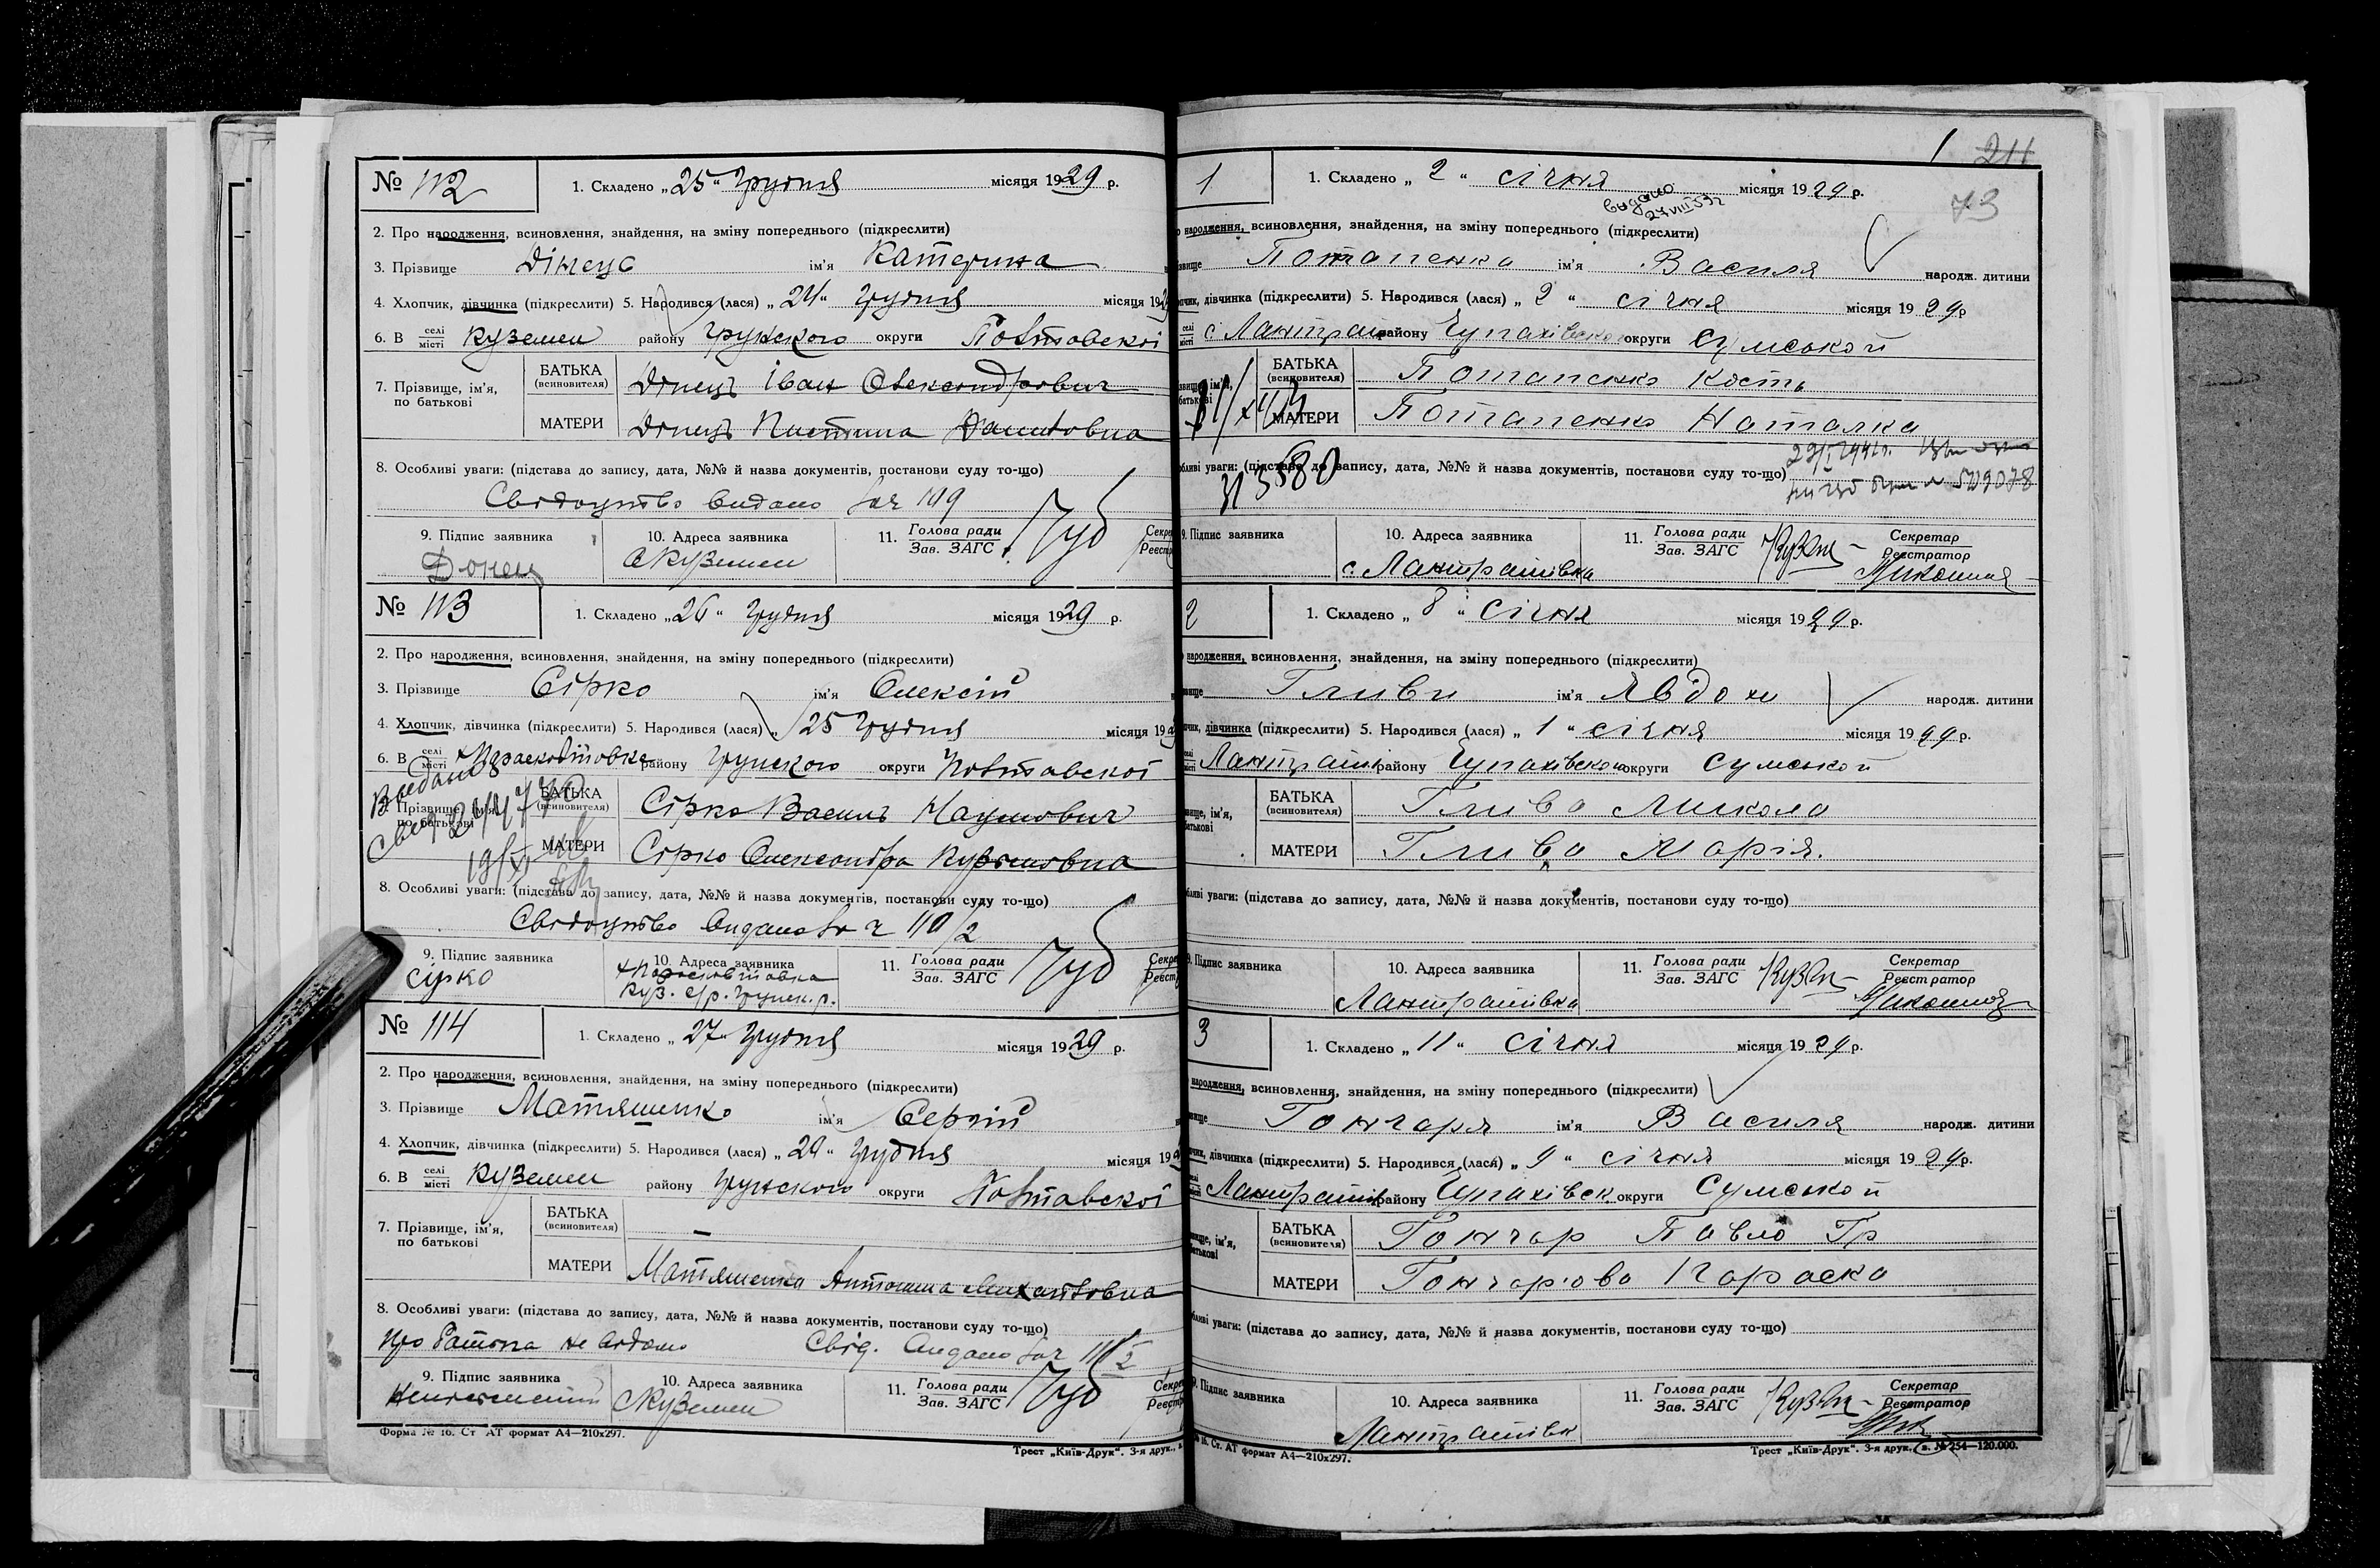 № 112
1. Складено „25“ грудня місяця 1929 р.
2. Про народження, всиновлення, знайдення, на зміну попереднього (підкреслити)
3. Прізвище Дінець ім'я Катерина
4. Хлопчик, дівчинка (підкреслити) 5. Народився (лася) „24“ грудня місяця 19
6. В селі місті Куземен району Грунського округи Полтавської
7. Прізвище, ім'я, по батькові
БАТЬКА (всиновителя) Дінець Іван Олександрович
МАТЕРИ Дінець
8. Особливі уваги: (підстава до запису, дата, №№ й назва документів, постанови суду то-що)
Свідоцтво видано за ч 109
9. Підпис заявника Донец
10. Адреса заявника с Куземен
11. Голова ради Зав. ЗАГС
№ 113
1. Складено „26“ грудня місяця 1929 р.
2. Про народження, всиновлення, знайдення, на зміну попереднього (підкреслити)
3. Прізвище Сірко ім'я Олексій
4. Хлопчик, дівчинка (підкреслити) 5. Народився (лася) „25 грудня місяця 19
6. В селі місті району Грунського округи Полтавської
7. Прізвище, ім'я, по батькові
БАТЬКА (всиновителя) Сірко Василь Наумович
МАТЕРИ Сірко Олександра
8. Особливі уваги: (підстава до запису, дата, №№ й назва документів, постанови суду то-що)
Свідоцтво видано за ч 110/2
9. Підпис заявника Сірко
10. Адреса заявника
Куз. с/р. Грунск. р.
11. Голова ради Зав. ЗАГС
№ 114
1. Складено „27“ грудня місяця 1929 р.
2. Про народження, всиновлення, знайдення, на зміну попереднього (підкреслити)
3. Прізвище Матяшенко ім'я Сергій
4. Хлопчик, дівчинка (підкреслити) 5. Народився (лася) „ “ грудня місяця 19
6. В селі місті Куземен району Грунського округи Полтавської
7. Прізвище, ім'я, по батькові
БАТЬКА (всиновителя) —
МАТЕРИ Матяшенко Антонина Михайловна
8. Особливі уваги: (підстава до запису, дата, №№ й назва документів, постанови суду то-що)
Про батька не відомо Свід. видано за ч 111/2
9. Підпис заявника
10. Адреса заявника с Куземен
11. Голова ради Зав. ЗАГС
Форма № 16. Ст АТ формат А4—210х297.
Трест „Київ-Друк“. 3-я друк.
1 211
73
1
1. Складено „2“ січня місяця 1929 р.
видано
27 VIII
народження, всиновлення, знайдення, на зміну попереднього (підкреслити)
Потапенка ім'я Василя народж. дитини
дівчинка (підкреслити) 5. Народився (лася) „2“ січня місяця 1929 р
району Чупахівсько округи Сумськой
БАТЬКА (всиновителя) Потапенко Кость
МАТЕРИ Потапенко Наталка
уваги: (підстава до запису, дата, №№ й назва документів, постанови суду то-що)
9. Підпис заявника
10. Адреса заявника с. Лантратівка
11. Голова ради Зав. ЗАГС
Секретар Реєстратор
2
1. Складено „8“ січня місяця 1929 р.
народження, всиновлення, знайдення, на зміну попереднього (підкреслити)
Гливи ім'я Явдохи народж. дитини
дівчинка (підкреслити) 5. Народився (лася) „1“ січня місяця 1929 р.
району Чупахівсько округи Сумськой
БАТЬКА (всиновителя) Глива Микола
МАТЕРИ Глива Марія.
уваги: (підстава до запису, дата, №№ й назва документів, постанови суду то-що)
9. Підпис заявника
10. Адреса заявника Лантратівка
11. Голова ради Зав. ЗАГС
Секретар Реєстратор
3
1. Складено „11“ січня місяця 1929 р.
народження, всиновлення, знайдення, на зміну попереднього (підкреслити)
Гончаря ім'я Василя народж. дитини
дівчинка (підкреслити) 5. Народився (лася) „9“ січня місяця 1929 р.
району Чупахівськ округи Сумськой
БАТЬКА (всиновителя) Гончар Павло Гр
МАТЕРИ Гончарова Параска
уваги: (підстава до запису, дата, №№ й назва документів, постанови суду то-що)
9. Підпис заявника
10. Адреса заявника Лантратівк
11. Голова ради Зав. ЗАГС
Секретар Реєстратор
№ 16. Ст. АТ формат А4—210х297.
Трест „Київ-Друк“. 3-я друк. з. № 254—120.000.